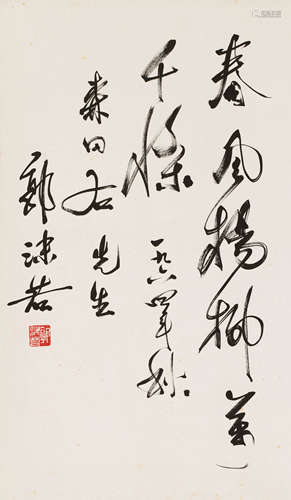 春风楊柳萬
千條 一九六四年秋
森田 先生
郭沫若